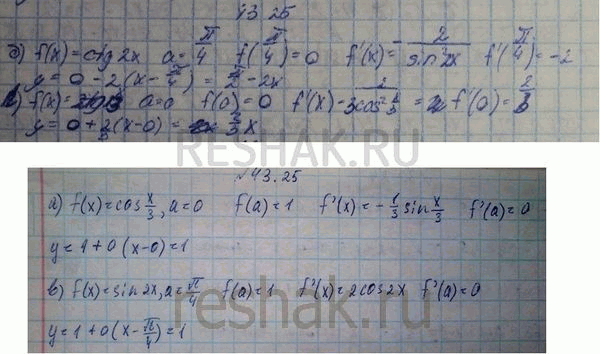 43.25
б) f(x)=ctg 2x a=π/4 f(π/4)=0 f'(x)=-2/sin²2x f'(π/4)=-2
y=0-2(x-π/4)=π/2-2x
f(x)= a=0 f(a)=0 f'(x)- 2/3cos² = f'(0)=2/3
y=0+2/3(x-0)= 2/3x
RESHAK.RU
№43.25
а) f(x)=cos x/3, a=0 f(a)=1 f'(x)=-1/3 sin x/3 f'(a)=0
y=1+0(x-0)=1
в) f(x)=sin2x, a=π/4 f(a)=1 f'(x)=2cos2x f'(a)=0
reshak.ru
y=1+0(x-π/4)=1